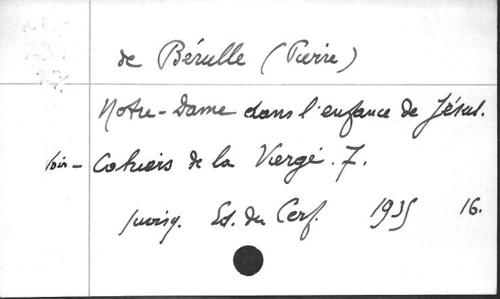 de Bérulle (Pierre)
Notre-Dame dans l'enfance de Jésus.
Voir - Cahiers de la Vierge. 7.
Juvisy. Ed. du Cerf. 1935 16.